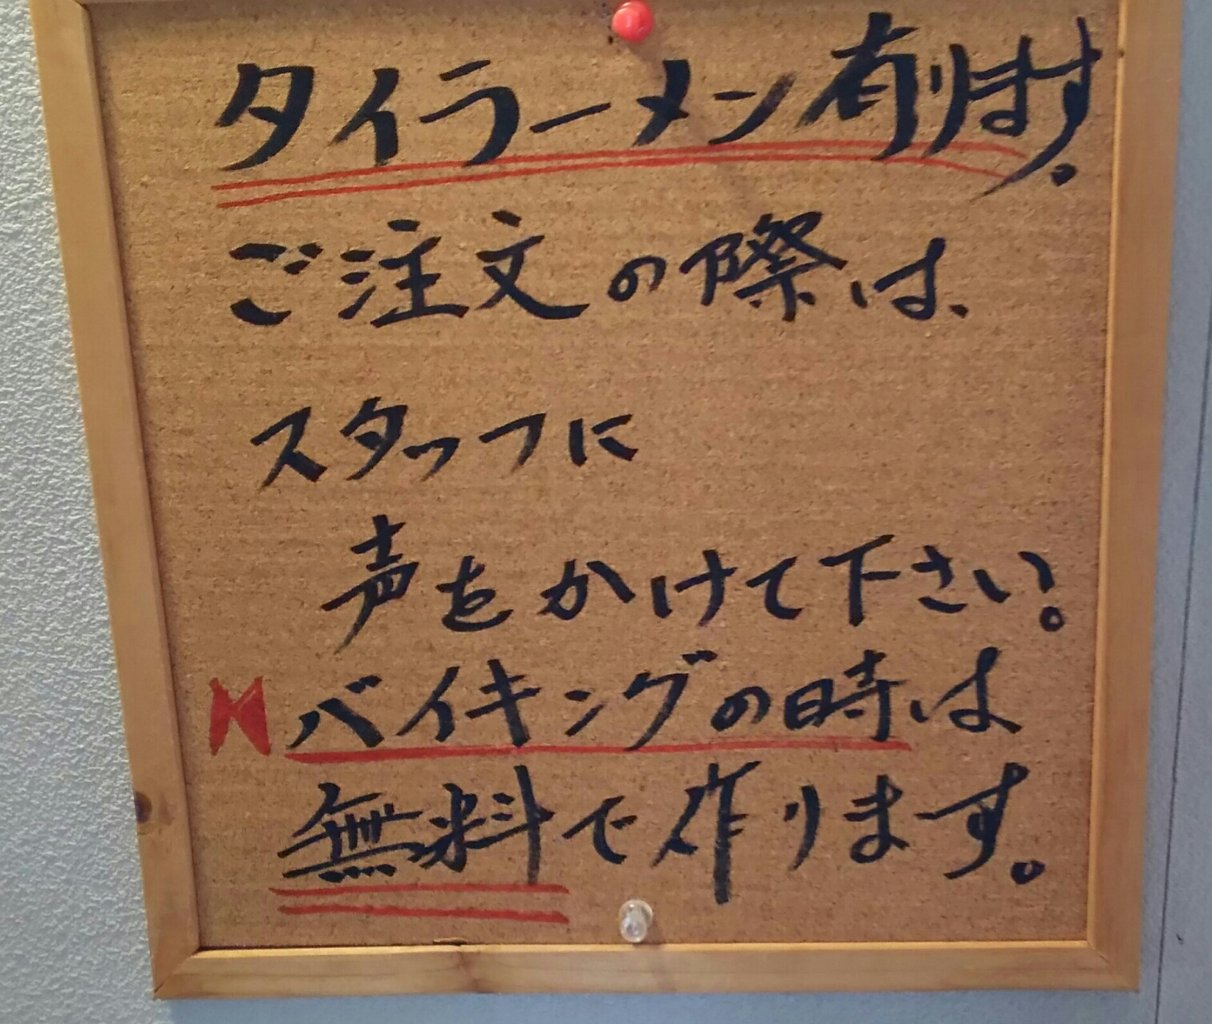 タイラーメン有ります。
ご注文の際は、
スタッフに
声をかけて下さい。
バイキングの時は
無料で作ります。